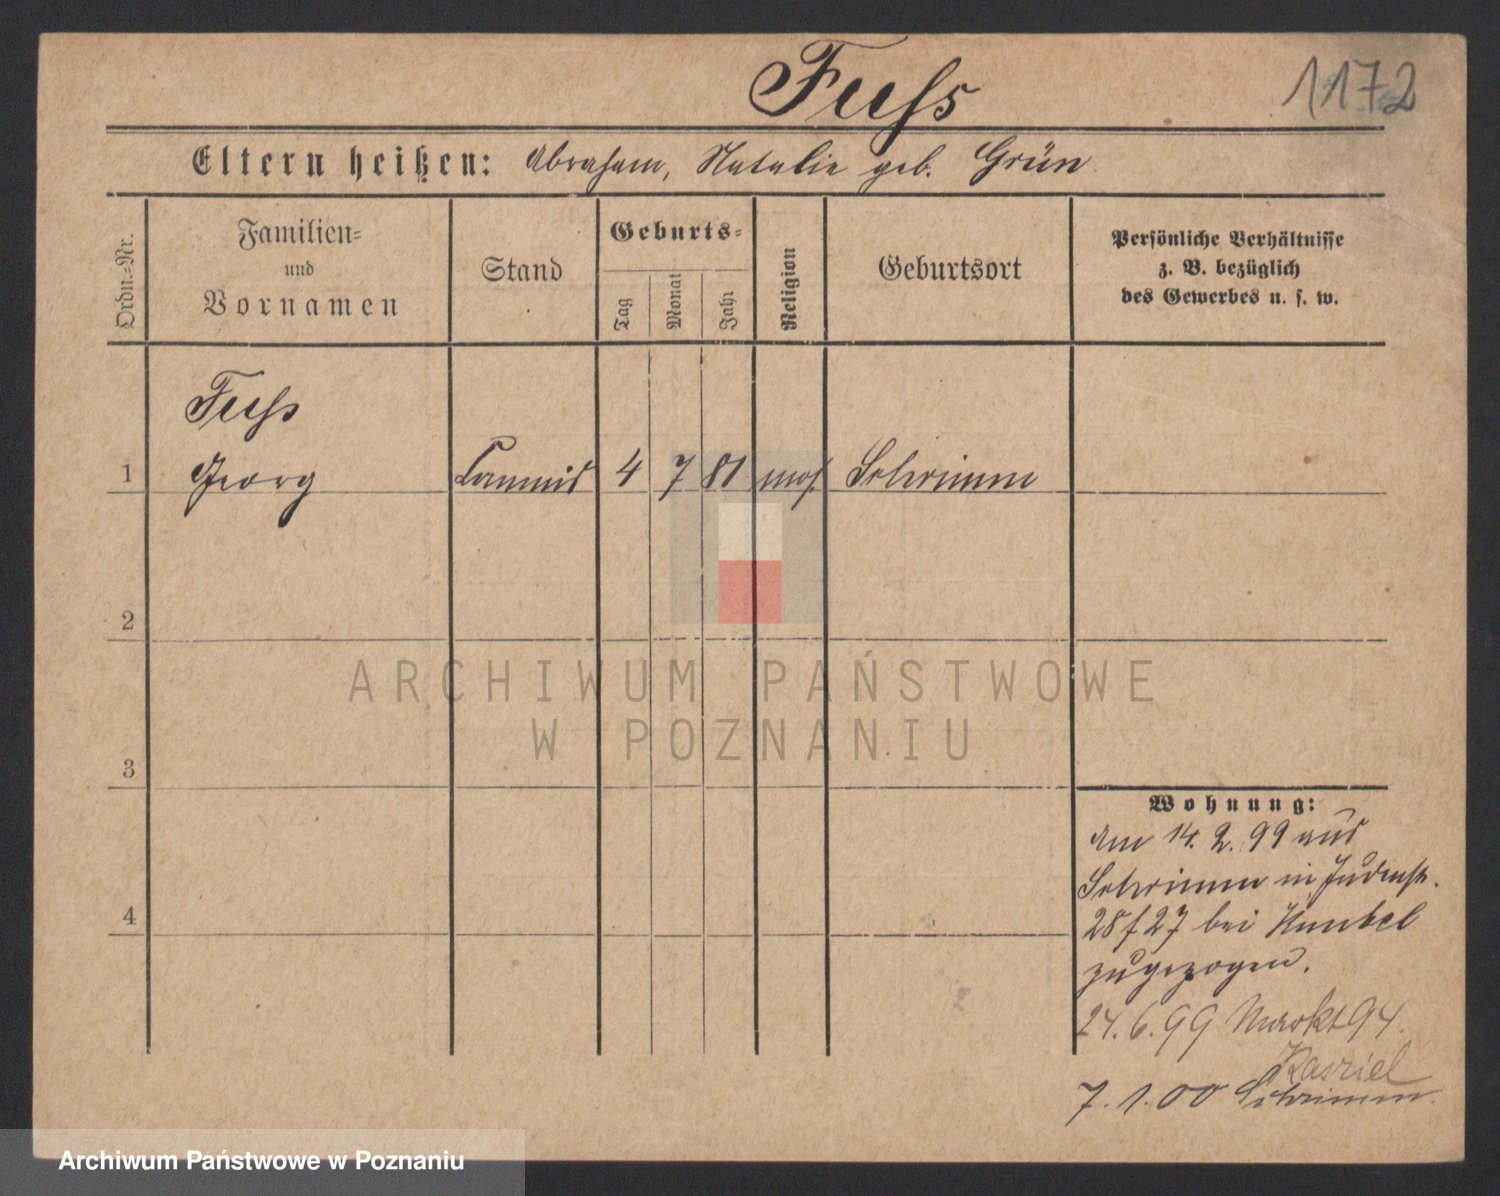 Fuſs
1172
Eltern heißen: Abraham, Natalie geb. Grün
Ordn.=Nr.
Familien=
und
Vornamen
Stand
Geburts=
Tag
Monat
Jahr
Religion
Geburtsort
Persönliche Verhältnisse
z. B. bezüglich
des Gewerbes u. s. w.
Fuſs
1 Georg Commis 4 7 81 mos. Schrimm
2
3
4
Wohnung:
Am 14. 2. 99 aus
Schrimm in Judenstr.
28/27 bei Kunkel
zugezogen.
24. 6. 99 Markt 94.
Kasriel
7. 1. 00 Schrimm.
ARCHIWUM PAŃSTWOWE
W POZNANIU
Archiwum Państwowe w Poznaniu